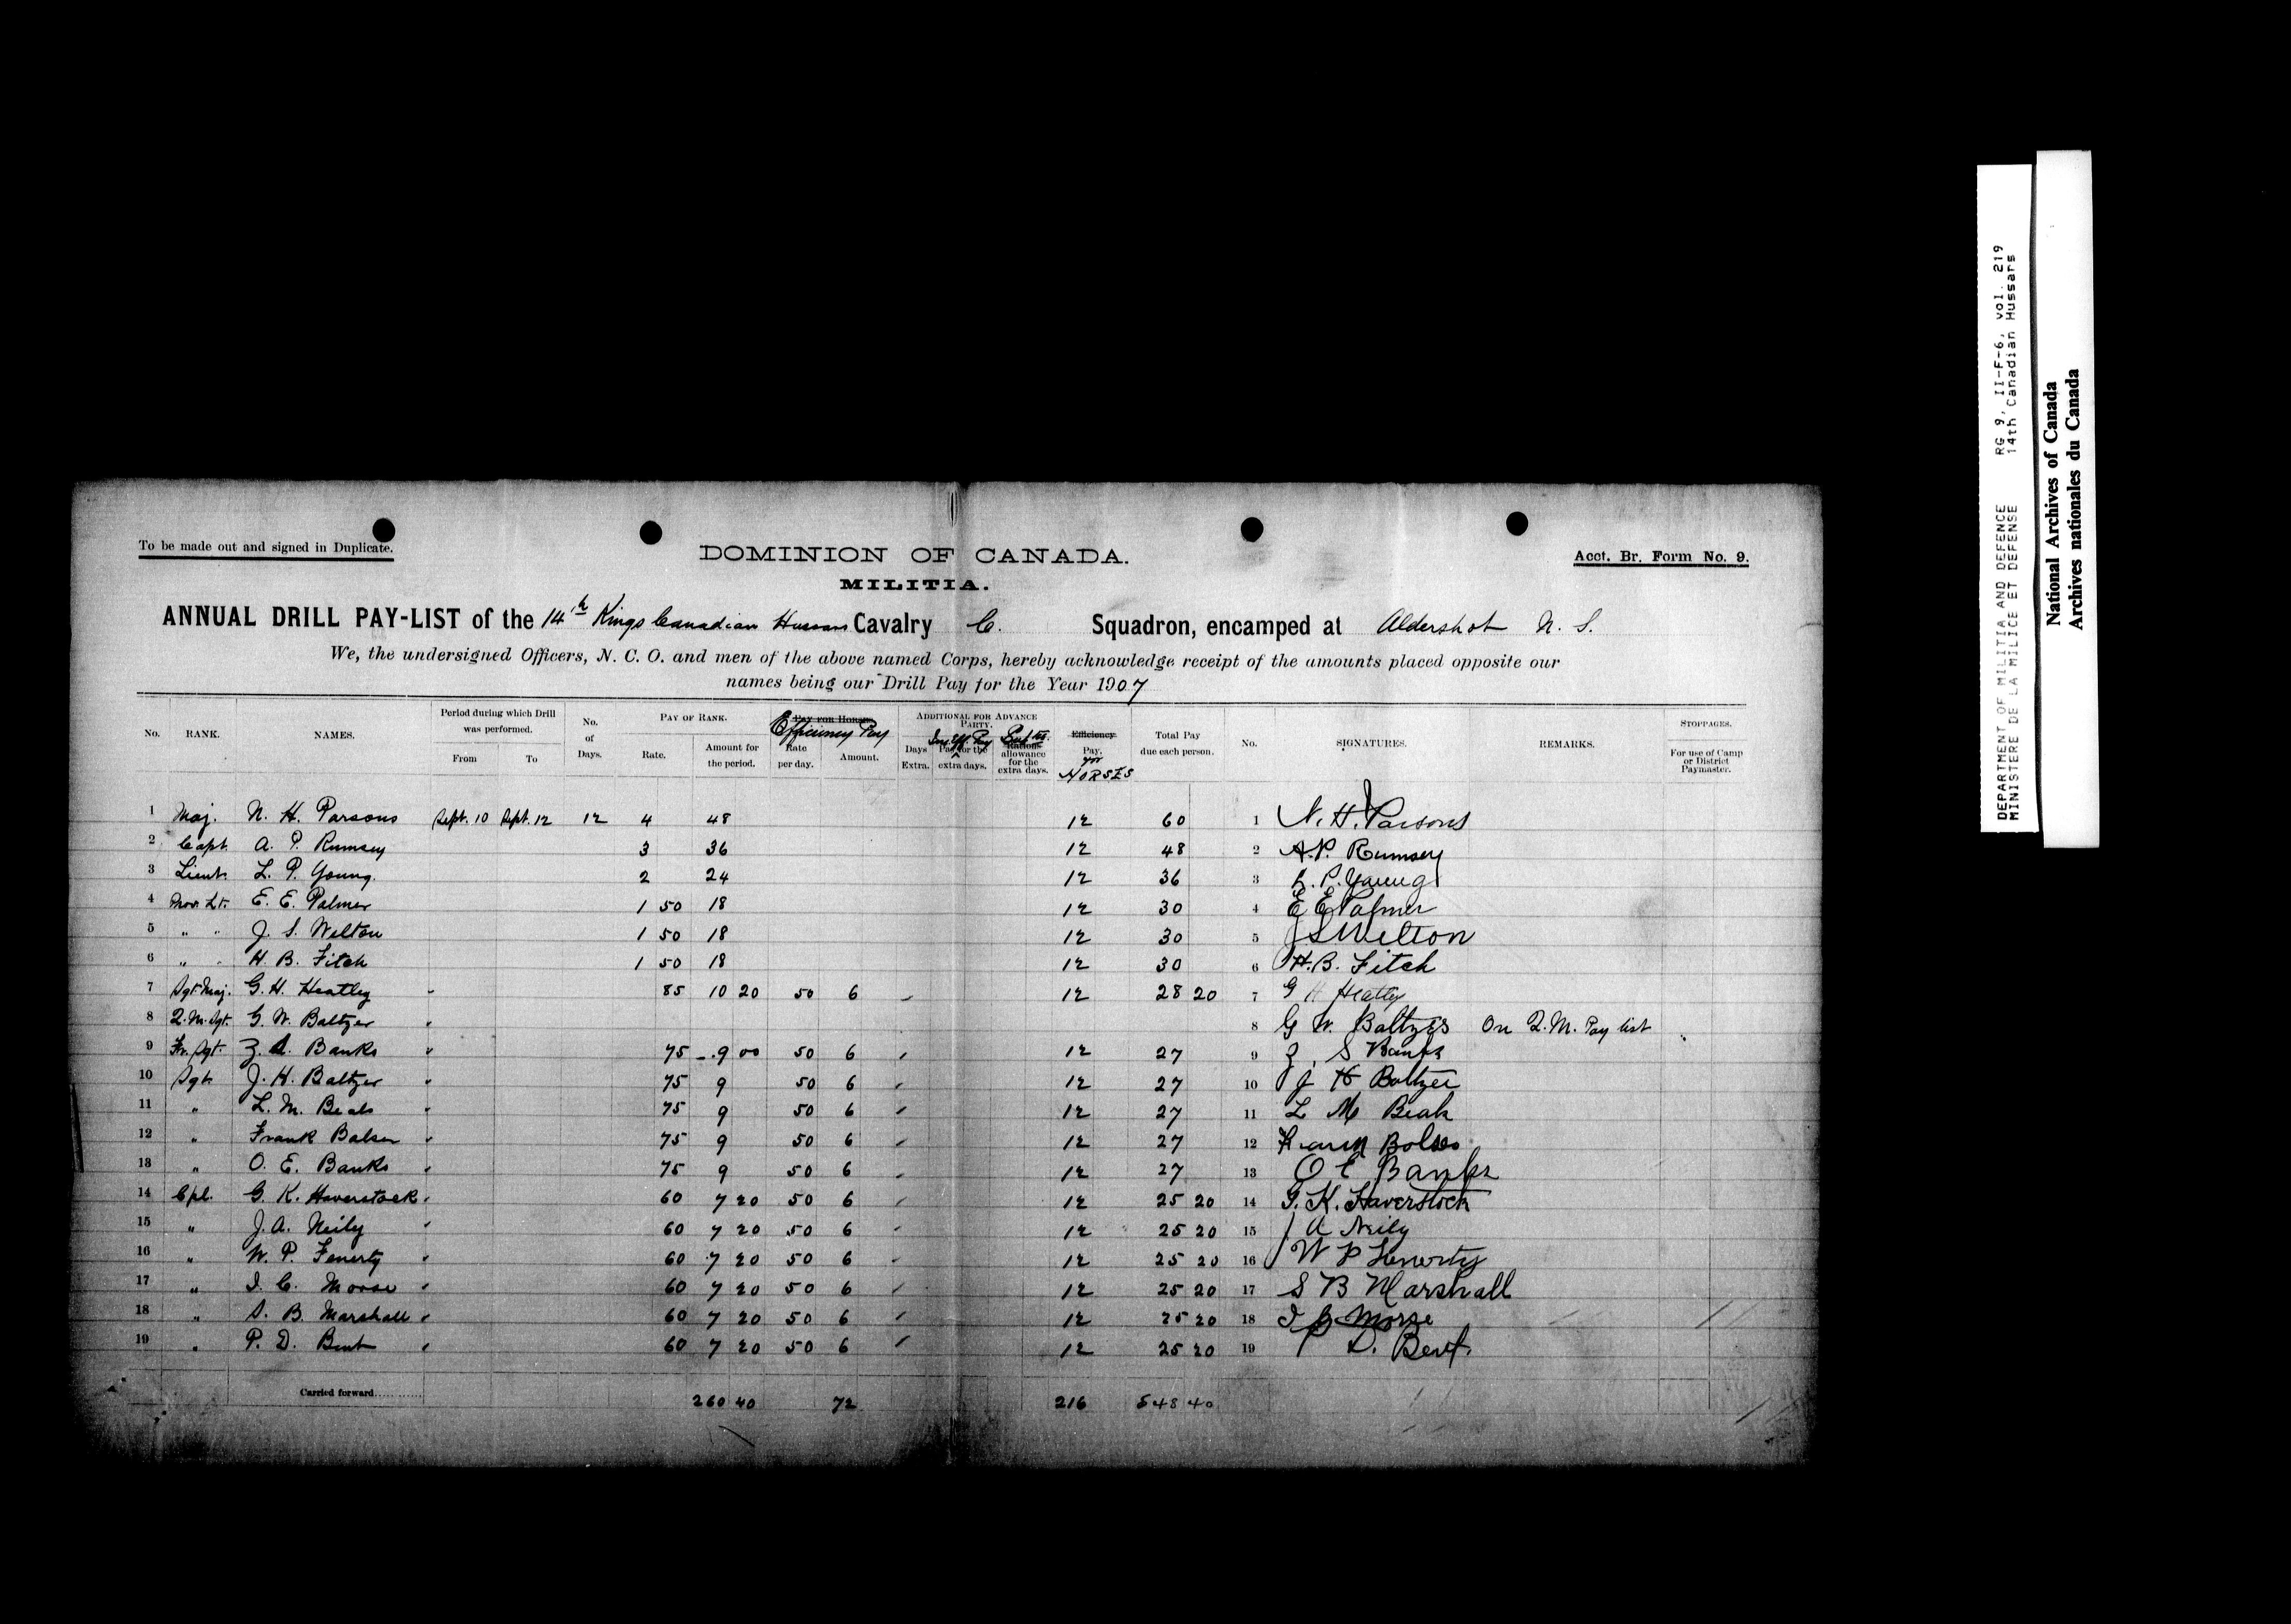 To be made out and signed in Duplicate.
DOMINION OF CANADA.
Acct. Br. Form No. 9.
MILITIA.
ANNUAL DRILL PAY-LIST of the 14th Kings Canadian Hussars Cavalry C. Squadron, encamped at Aldershot N. S.
We, the undersigned Officers, N. C. O. and men of the above named Corps, hereby acknowledge receipt of the amounts placed opposite our
names being our Drill Pay for the Year 1907
No. RANK. NAMES. Period during which Drill was performed. From To No. of Days. PAY OF RANK. Rate. Amount for the period. PAY FOR HORSE Efficiency Pay Rate per day. Amount. ADDITIONAL FOR ADVANCE PARTY. Days Extra. Pay for the extra days. Rations allowance for the extra days. Efficiency Pay. for HORSES Total Pay due each person. No. SIGNATURES. REMARKS. STOPPAGES. For use of Camp or District Paymaster.
1 Maj. N. H. Parsons Sept. 10 Sept. 12 12 4 48 12 60 1 N. H. Parsons
2 Capt. A. P. Rumsey 3 36 12 48 2 A. P. Rumsey
3 Lieut. L. P. Young. 2 24 12 36 3 L. P. Young
4 Prov. Lt. E. E. Palmer 1 50 18 12 30 4 E E Palmer
5 " " J. S. Welton 1 50 18 12 30 5 J S Welton
6 " " H. B. Fitch 1 50 18 12 30 6 H. B. Fitch
7 Sgt. Maj. G. H. Heatley 85 10 20 50 6 12 28 20 7 G H Heatley
8 Q. M. Sgt. G. W. Baltzer 8 G W. Baltzer On Q. M. Pay list
9 Fr. Sgt. Z. S. Banks 75 9 00 50 6 12 27 9 Z. S Banks
10 Sgt. J. H. Baltzer 75 9 50 6 12 27 10 J H Baltzer
11 " L. M. Beals 75 9 50 6 12 27 11 L M Beals
12 " Frank Balser 75 9 50 6 12 27 12
13 " O. E. Banks 75 9 50 6 12 27 13 O E Banks
14 Cpl. G. K. Haverstock 60 7 20 50 6 12 25 20 14 G. K. Haverstock
15 " J. A. Neily 60 7 20 50 6 12 25 20 15 J A Neily
16 " W. P. Fenerty 60 7 20 50 6 12 25 20 16 W P Fenerty
17 " I. C. Morse 60 7 20 50 6 12 25 20 17 S B Marshall
18 " S. B. Marshall 60 7 20 50 6 12 25 20 18 I C Morse
19 " P. D. Bent 60 7 20 50 6 12 25 20 19 P D. Bent.
Carried forward 260 40 72 216 548 40
DEPARTMENT OF MILITIA AND DEFENCE RG 9, II-F-6, vol. 219
MINISTERE DE LA MILICE ET DEFENSE 14th Canadian Hussars
National Archives of Canada
Archives nationales du Canada